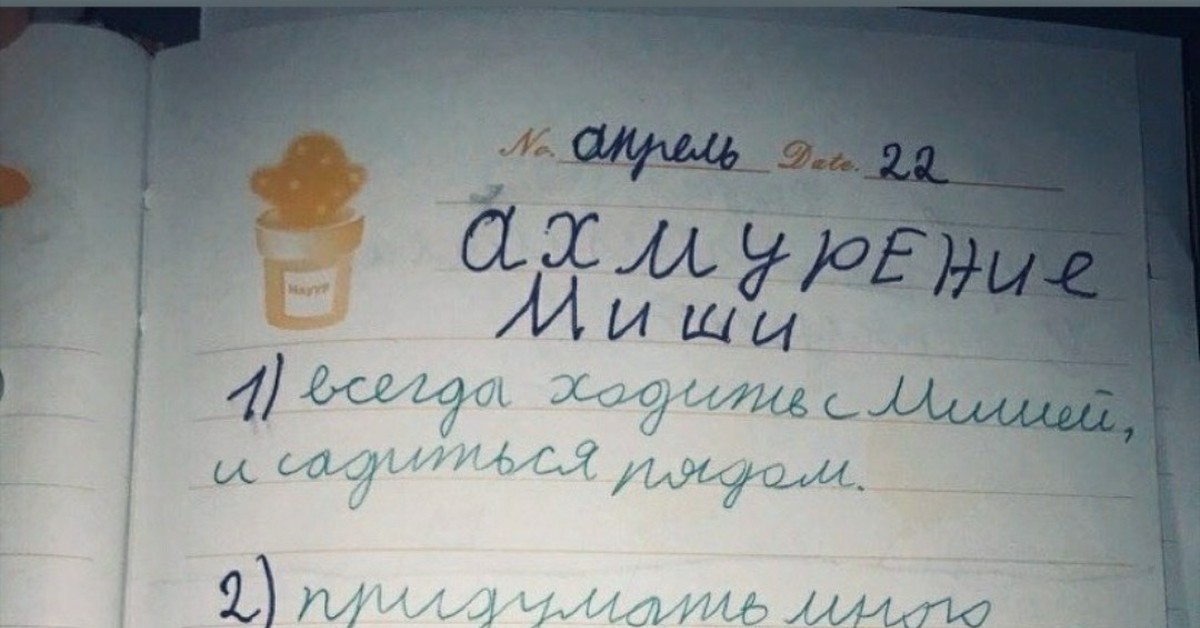 No. апрель Date. 22
ахмурЕНие
Миши
1) всегда ходить с Мишей,
и садиться рядом.
2) придумать много